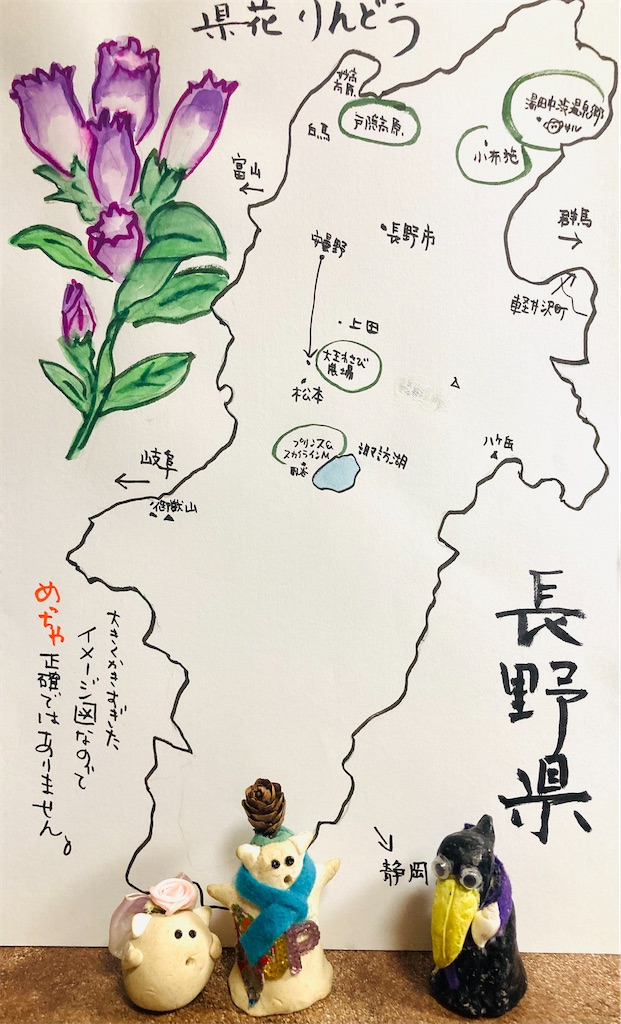 県花 りんどう
妙高
高原
白馬
戸隠高原
湯田中渋温泉郷
サル
小布施
富山
群馬
安曇野
長野市
軽井沢町
上田
大王わさび
農場
松本
プリンス&
スカイラインM
諏訪湖
八ケ岳
岐阜
御嶽山
長野県
大きくかきすぎた
イメージ図なので
めっちゃ正確ではありません。
静岡
UP